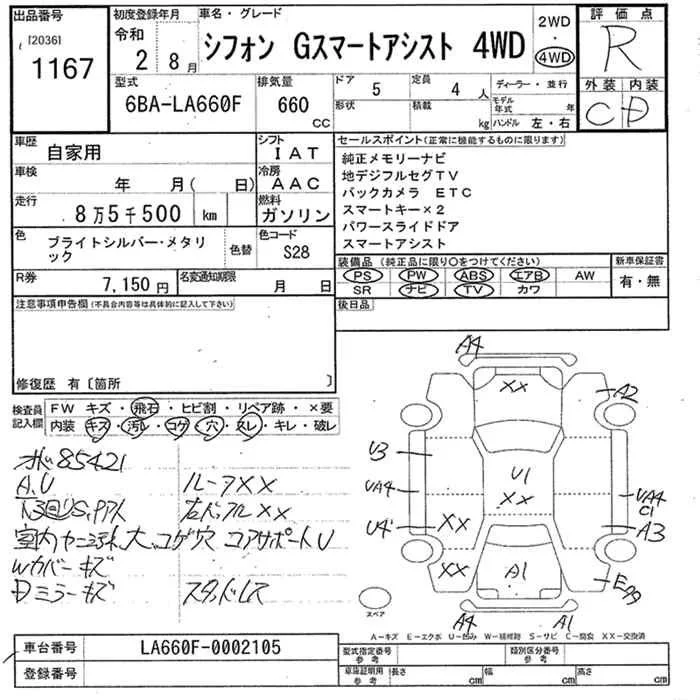 出品番号
[2036]
1167
初度登録年月
令和
2 8月
車名・グレード
シフォン Gスマートアシスト 4WD
2WD
・
4WD
評価点
R
外装 内装
C D
型式
6BA-LA660F
排気量
660
CC
ドア
5
定員
4 人
形状
積載
kg
ディーラー・並行
モデル年式 年
ハンドル 左・右
車歴
自家用
シフト
IAT
車検
年 月( 日)
冷房
AAC
走行
8万5千500 km
燃料
ガソリン
色
ブライトシルバー・メタリック
色替
色コード
S28
R券
7,150円
名変通知期限
月 日
セールスポイント(正常に機能するものに限ります)
純正メモリーナビ
地デジフルセグTV
バックカメラ ETC
スマートキー×2
パワースライドドア
スマートアシスト
装備品(純正品に限り○をつけてください)
PS PW ABS エアB AW
SR ナビ TV カワ
新車保証書
有・無
後日品
注意事項申告欄(不具合内容等は具体的に記入して下さい)
修復歴 有〔箇所 〕
検査員記入欄
FW キズ・飛石・ヒビ割・リペア跡・×要
内装 キズ・汚レ・コゲ・穴・スレ・キレ・破レ
85421
A.U
ルーフXX
XX
室内ヤニ汚れ大、コゲ穴 コアサポートU
Wカバーキズ
Dミラーキズ
スタッドレス
A4
XX
A2
U3
U1
VA4
XX
VA4
C1
U4
XX
A3
XX
A1
E
A4
A1
スペア
A−キズ E−エクボ U−凹み W−補修跡 S−サビ C−腐食 XX−交換済
車台番号
LA660F-0002105
登録番号
型式指定番号
参考
類別区分番号
参考
車庫証明用
参考
長さ cm
幅 cm
高さ cm